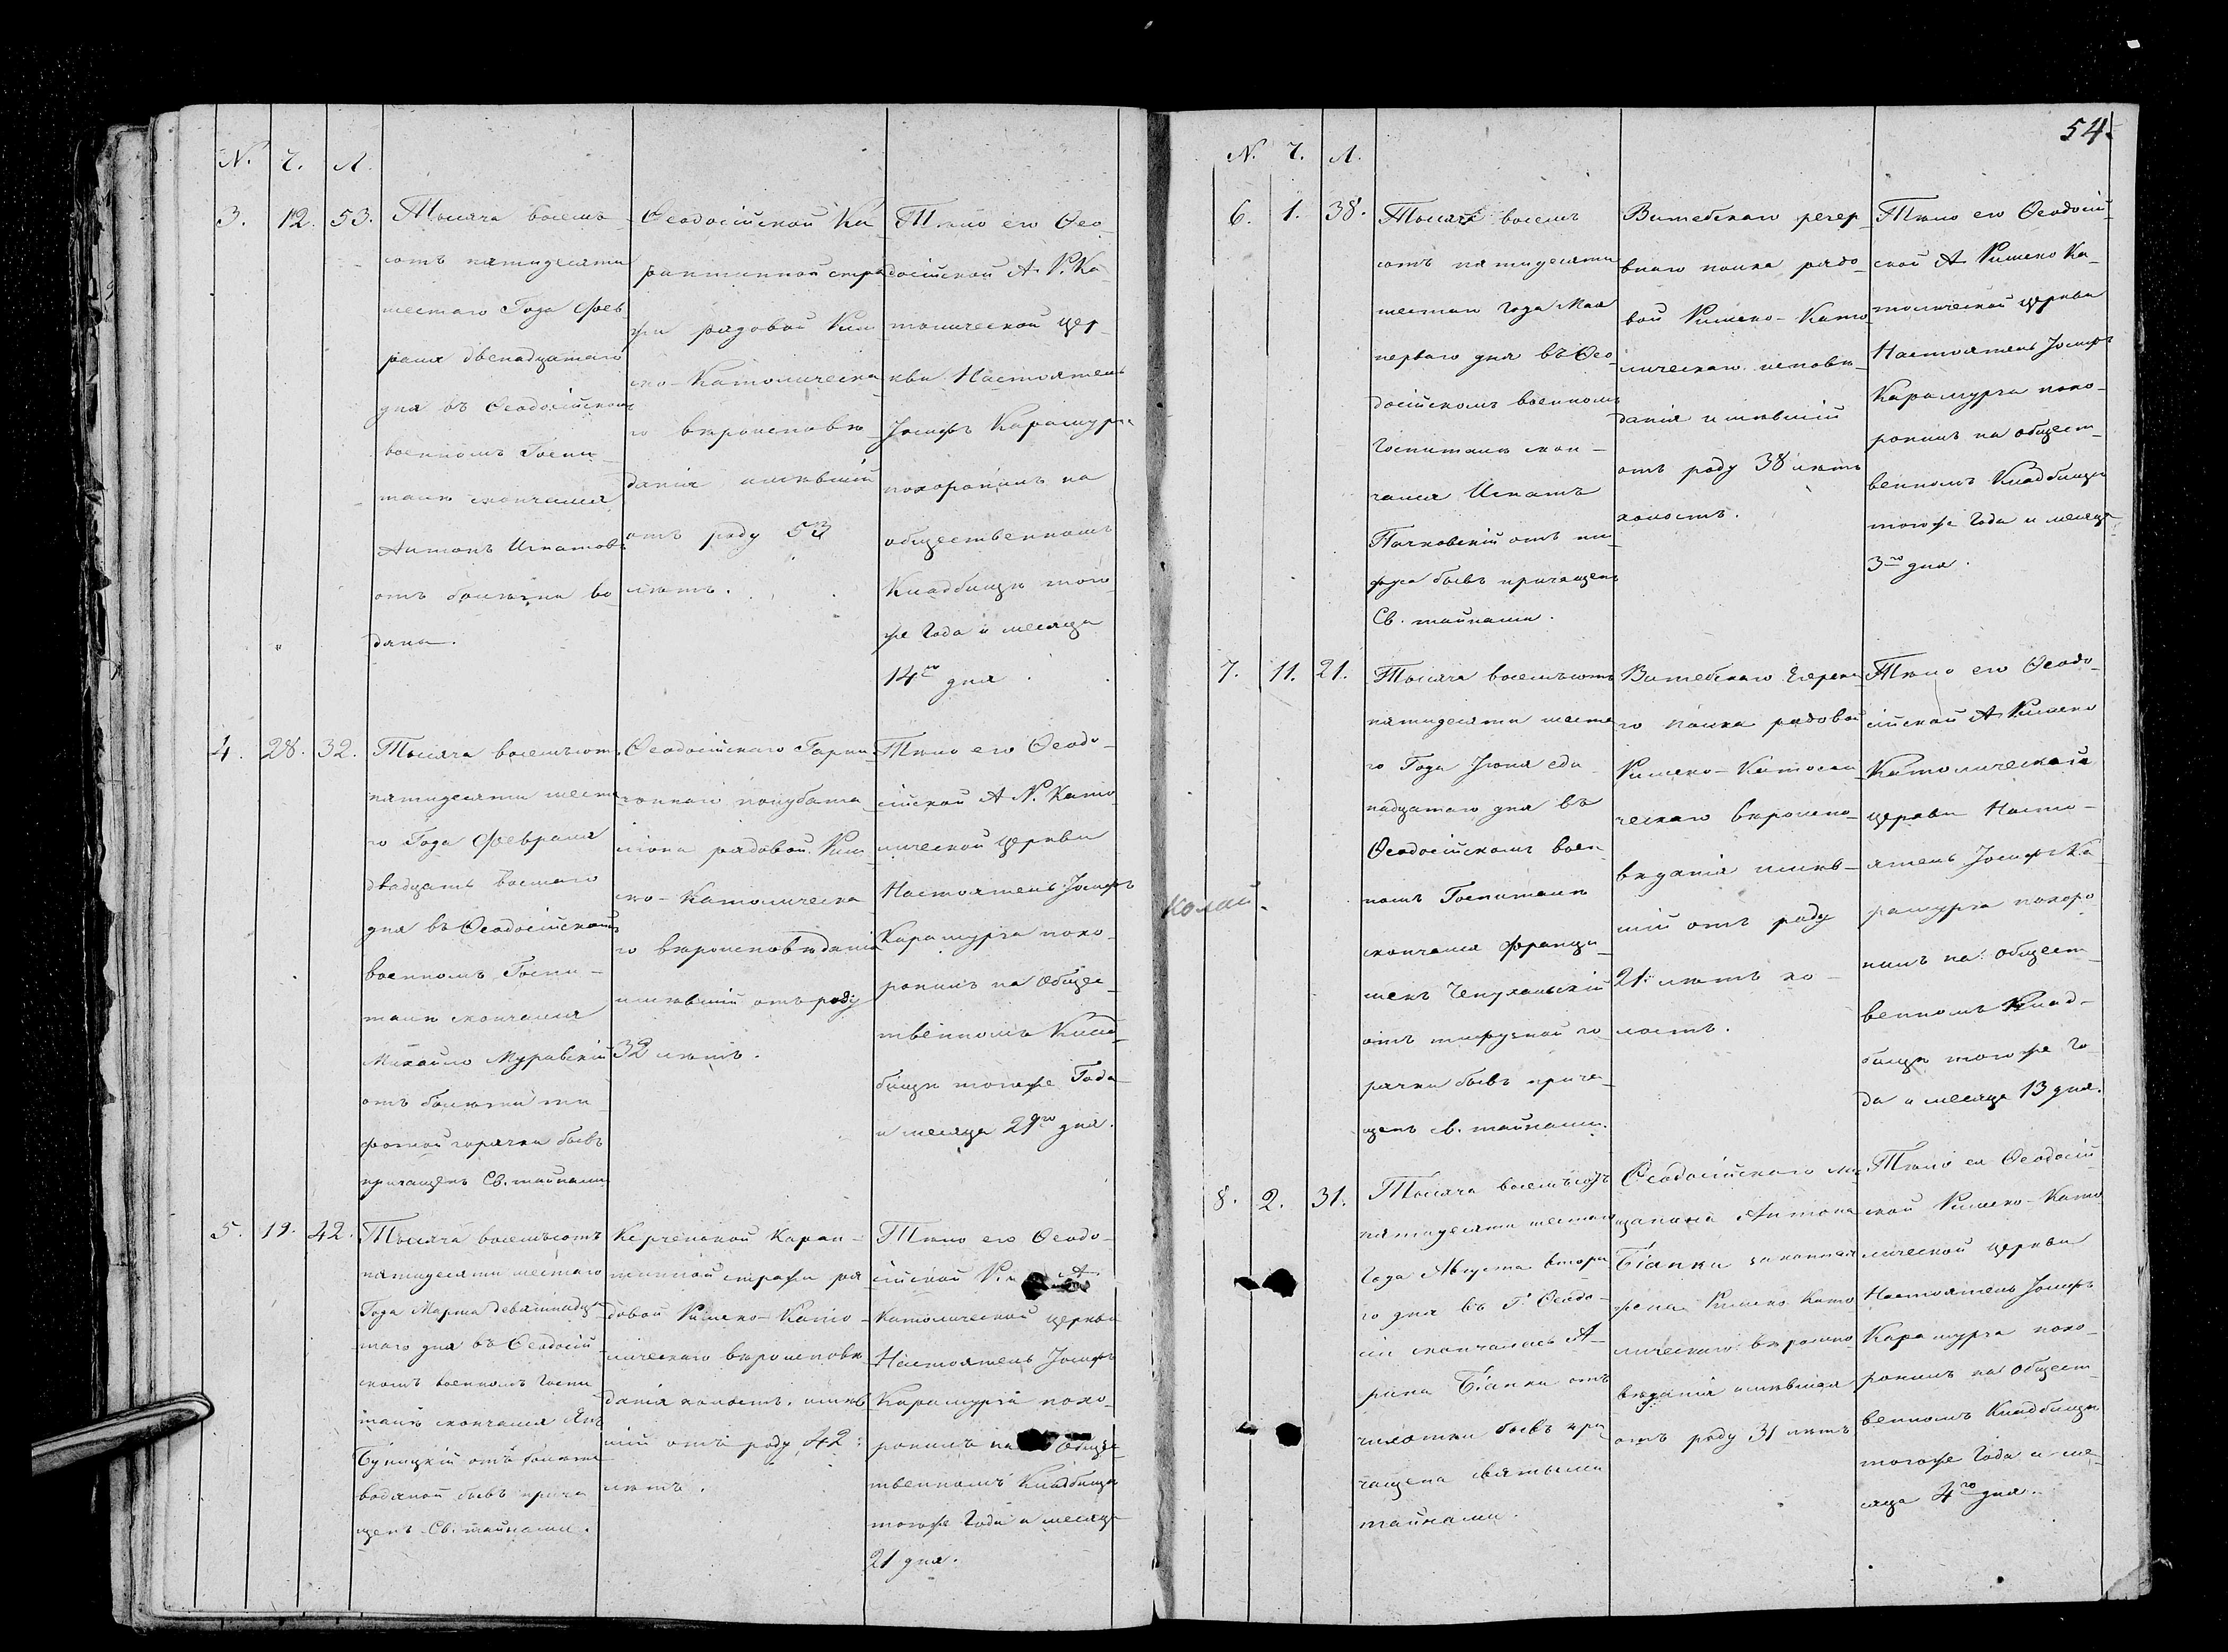 N. Ч. Л.
3. 12. 53.
Тысяча восемь
сотъ пятидесяти
шестаго Года Фев
раля двенадцатаго
дня въ Ѳеодосійскомъ
военномъ Госпи
талѣ скончался
Антонъ Игнатовъ
отъ болѣзни во
дяна.
Ѳеодосійской Ка
рантинной стра
жи рядовой Рим
ско-Католическа
го вѣроисповѣ
данія имѣвшій
отъ роду 53
лѣтъ.
Тѣло его Ѳео
досійской А. Р. Ка
толической цер
кви Настоятель
Іосифъ Карамурза
похоронилъ на
общественномъ
Кладбищѣ того
же Года и месяца
14го дня.
4. 28. 32.
Тысяча восемьсот
пятидесяти шеста
го Года Февраля
двадцать восмаго
дня въ Ѳеодосійскомъ
военномъ Госпи-
талѣ скончался
Михайло Муравскій
отъ болѣзни ти
фозной горячки бывъ
причащенъ Св. тайнами
Ѳеодосійскаго Гарни
зоннаго полубата
ліона рядовой Рим
ско-Католическа
го вѣроисповѣданія
имѣвшій отъ роду
32 лѣтъ.
Тѣло его Ѳеодо-
сійской А Р. Като
лической церкви
Настоятель Іосифъ
Карамурза похо-
ронилъ на Общес
твенномъ Клад
бищѣ тогоже Года
и месяца 29го дня.
5. 19. 42.
Тысяча восемьсотъ
пятидесяти шестаго
Года Марта девятнадца
таго дня въ Ѳеодосій
скомъ военномъ Госпи
талѣ скончался Янъ
Буницкій отъ болѣзни
водяной бывъ прича
щенъ Св. тайнами.
Керченской Каран-
тинной стражи ря
довой Римско-Като-
лическаго вѣроисповѣ
данія холостъ. имѣв
шій отъ роду 42
лѣтъ.
Тѣло его Ѳеодо-
сійской А.
Католической церкви
Настоятель Іосифъ
Карамурза похо-
ронилъ на Общес
твенномъ Кладбищѣ
тогоже Года и месяца
21 дня.
54.
N. Ч. Л.
6. 1. 38.
Тысяча восемь
сотъ пятидесяти
шестаго Года Мая
перваго дня въ Ѳео
досійскомъ военномъ
Госпиталѣ скон-
чался Игнатъ
Пачковскій отъ ти
фуса бывъ причащенъ
Св. тайнами.
Витебскаго резер
внаго полка рядо
вой Римско-Като
лическаго исповѣ
данія имѣвшій
отъ роду 38 лѣтъ
холостъ.
Тѣло его Ѳеодосій
ской А Римско Ка-
толической церкви
Настоятель Іосифъ
Карамурза похо-
ронилъ на общест
венномъ Кладбищѣ
тогоже Года и месяца
3го дня.
7. 11. 21.
Тысяча восемьсотъ
пятидесяти шеста
го Года Іюня еди
надцатаго дня въ
Ѳеодосійскомъ воен
номъ Госпиталѣ
скончался Франци
шекъ
отъ тифузной го
рячки бывъ прича-
щенъ св. тайнами.
Витебскаго Егерска
го полка рядовой
Римско-Католи
ческаго вѣроиспо-
вѣданія имѣв-
шій отъ роду
21 лѣтъ хо-
лостъ.
Тѣло его Ѳеодо-
сійской А Римско
Католической
церкви Насто-
ятель Іосифъ Ка
рамурза похоро
нилъ на общест
венномъ Клад-
бищѣ тогоже Го
да и месяца 13 дня.
8. 2. 31.
Тысяча восемьсотъ
пятидесяти шестаго
Года Августа втора
го дня въ Г. Ѳеодо-
сіи скончалась А-
рина Біанки отъ
чихотки бывъ при
чащена святыми
тайнами.
Ѳеодосійскаго мѣ
щанина Антона
Біанки законная
жена Римско Като
лическаго вѣроиспо
вѣданія имѣвшая
отъ роду 31 лѣтъ
Тѣло ея Ѳеодосій
ской Римско-Като
лической церкви
Настоятель Іосифъ
Карамурза похо-
ронилъ на общест
венномъ Кладбищѣ
тогоже Года и ме-
сяца 4го дня.